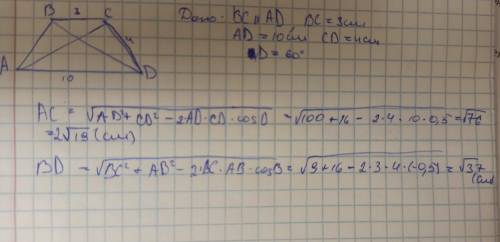 B 3 C Дано: BC || AD BC = 3см
AD = 10см CD = 4см
4 ∠D = 60°
A 10 D
AC = √AD² + CD² − 2·AD·CD·cosD = √100 + 16 − 2·4·10·0,5 = √76
= 2√19 (см)
BD = √BC² + AB² − 2·BC·AB·cosB = √9 + 16 − 2·3·4·(−0,5) = √37
(см)